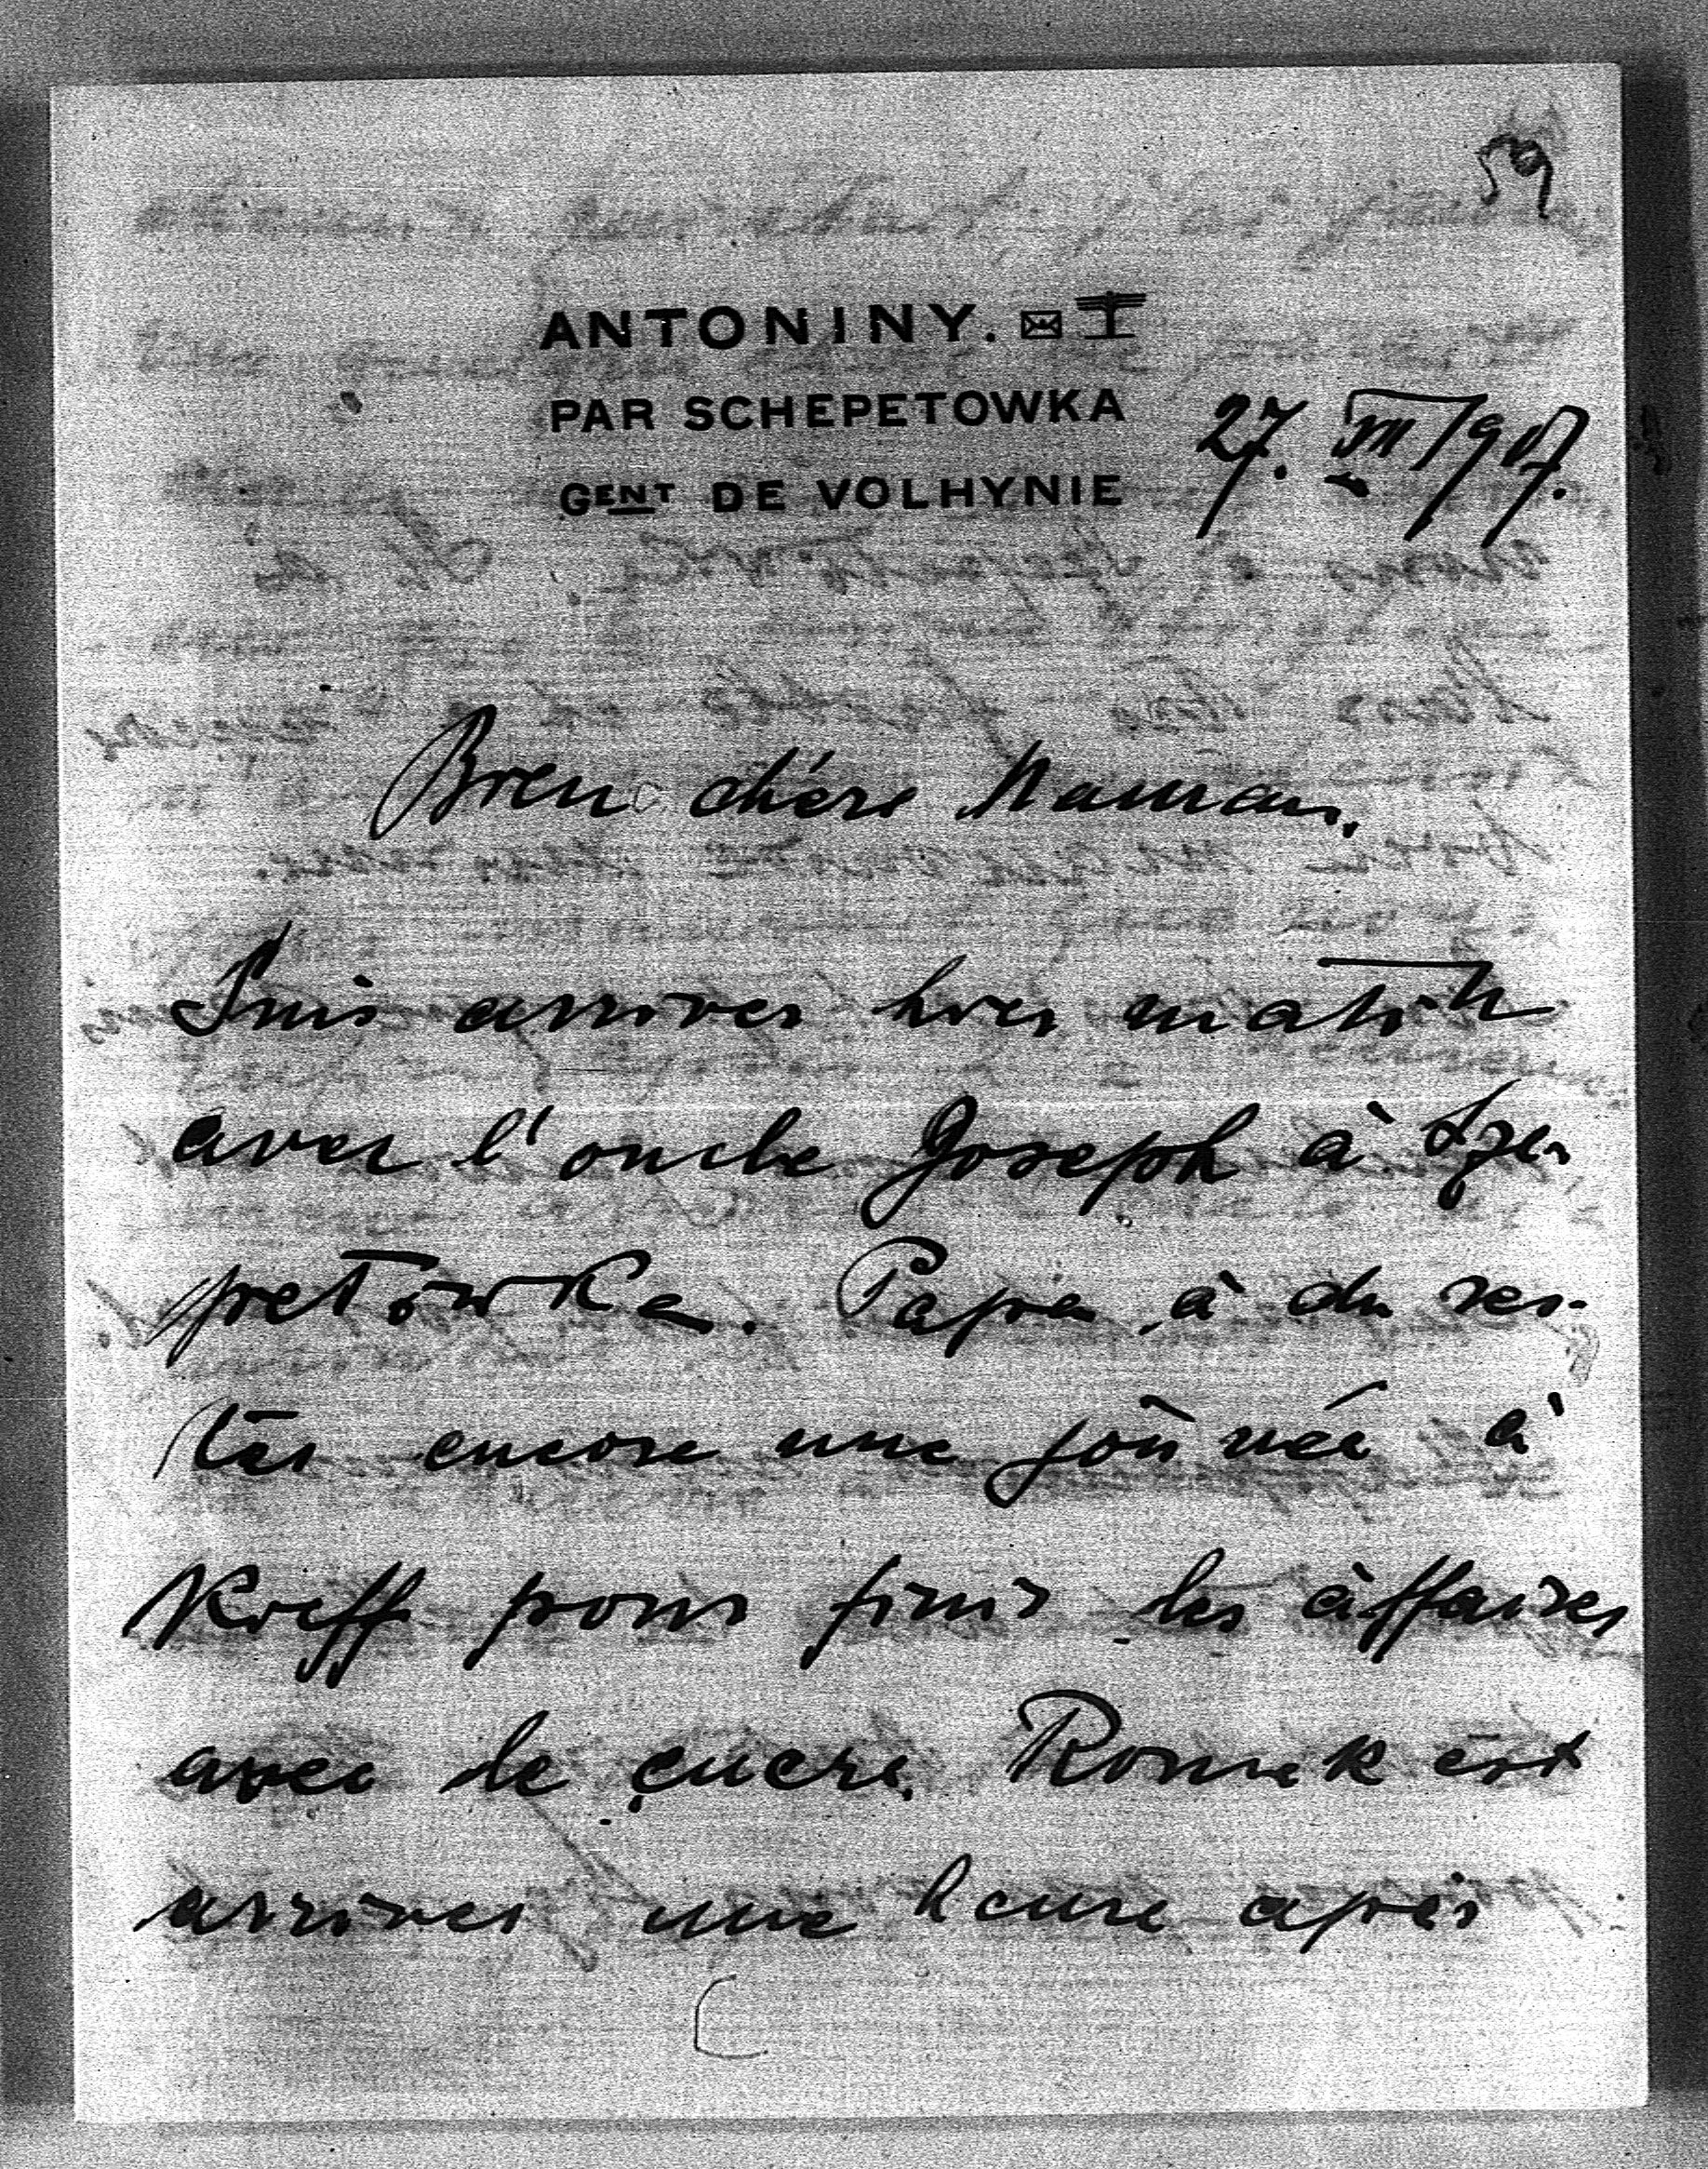 59
ANTONINY.
PAR SCHEPETOWKA
GENT DE VOLHYNIE
27. VII/907.
Bien chère Maman.
Suis arriver hier matin
avec l'oncle Joseph à Sze-
petowka. Papa à du res-
ter encore une journée à
Kieff pour finir les affaires
avec le çucre. Romek est
arriver une heure après